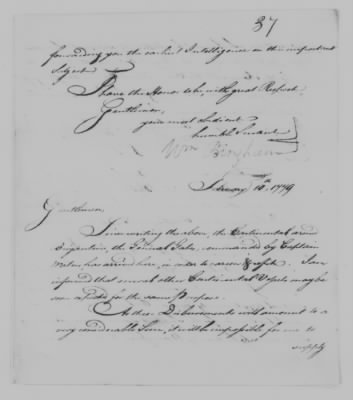 37
forwarding you the earliest Intelligence on this important
Subject
I have the Honor to be, with great Respect
Gentlemen,
your most Obedient
humble Servant
Wm Bingham
February 16th 1779
Gentlemen
Since writing the above, the Continental armed
Brigantine, the General Gates, commanded by Captain
has arrived here, in order to & refit. I am
informed that several other Continental Vessels may be
for the same purpose.
As these Disbursements will amount to a
very considerable Sum, it will be impossible for me to
supply